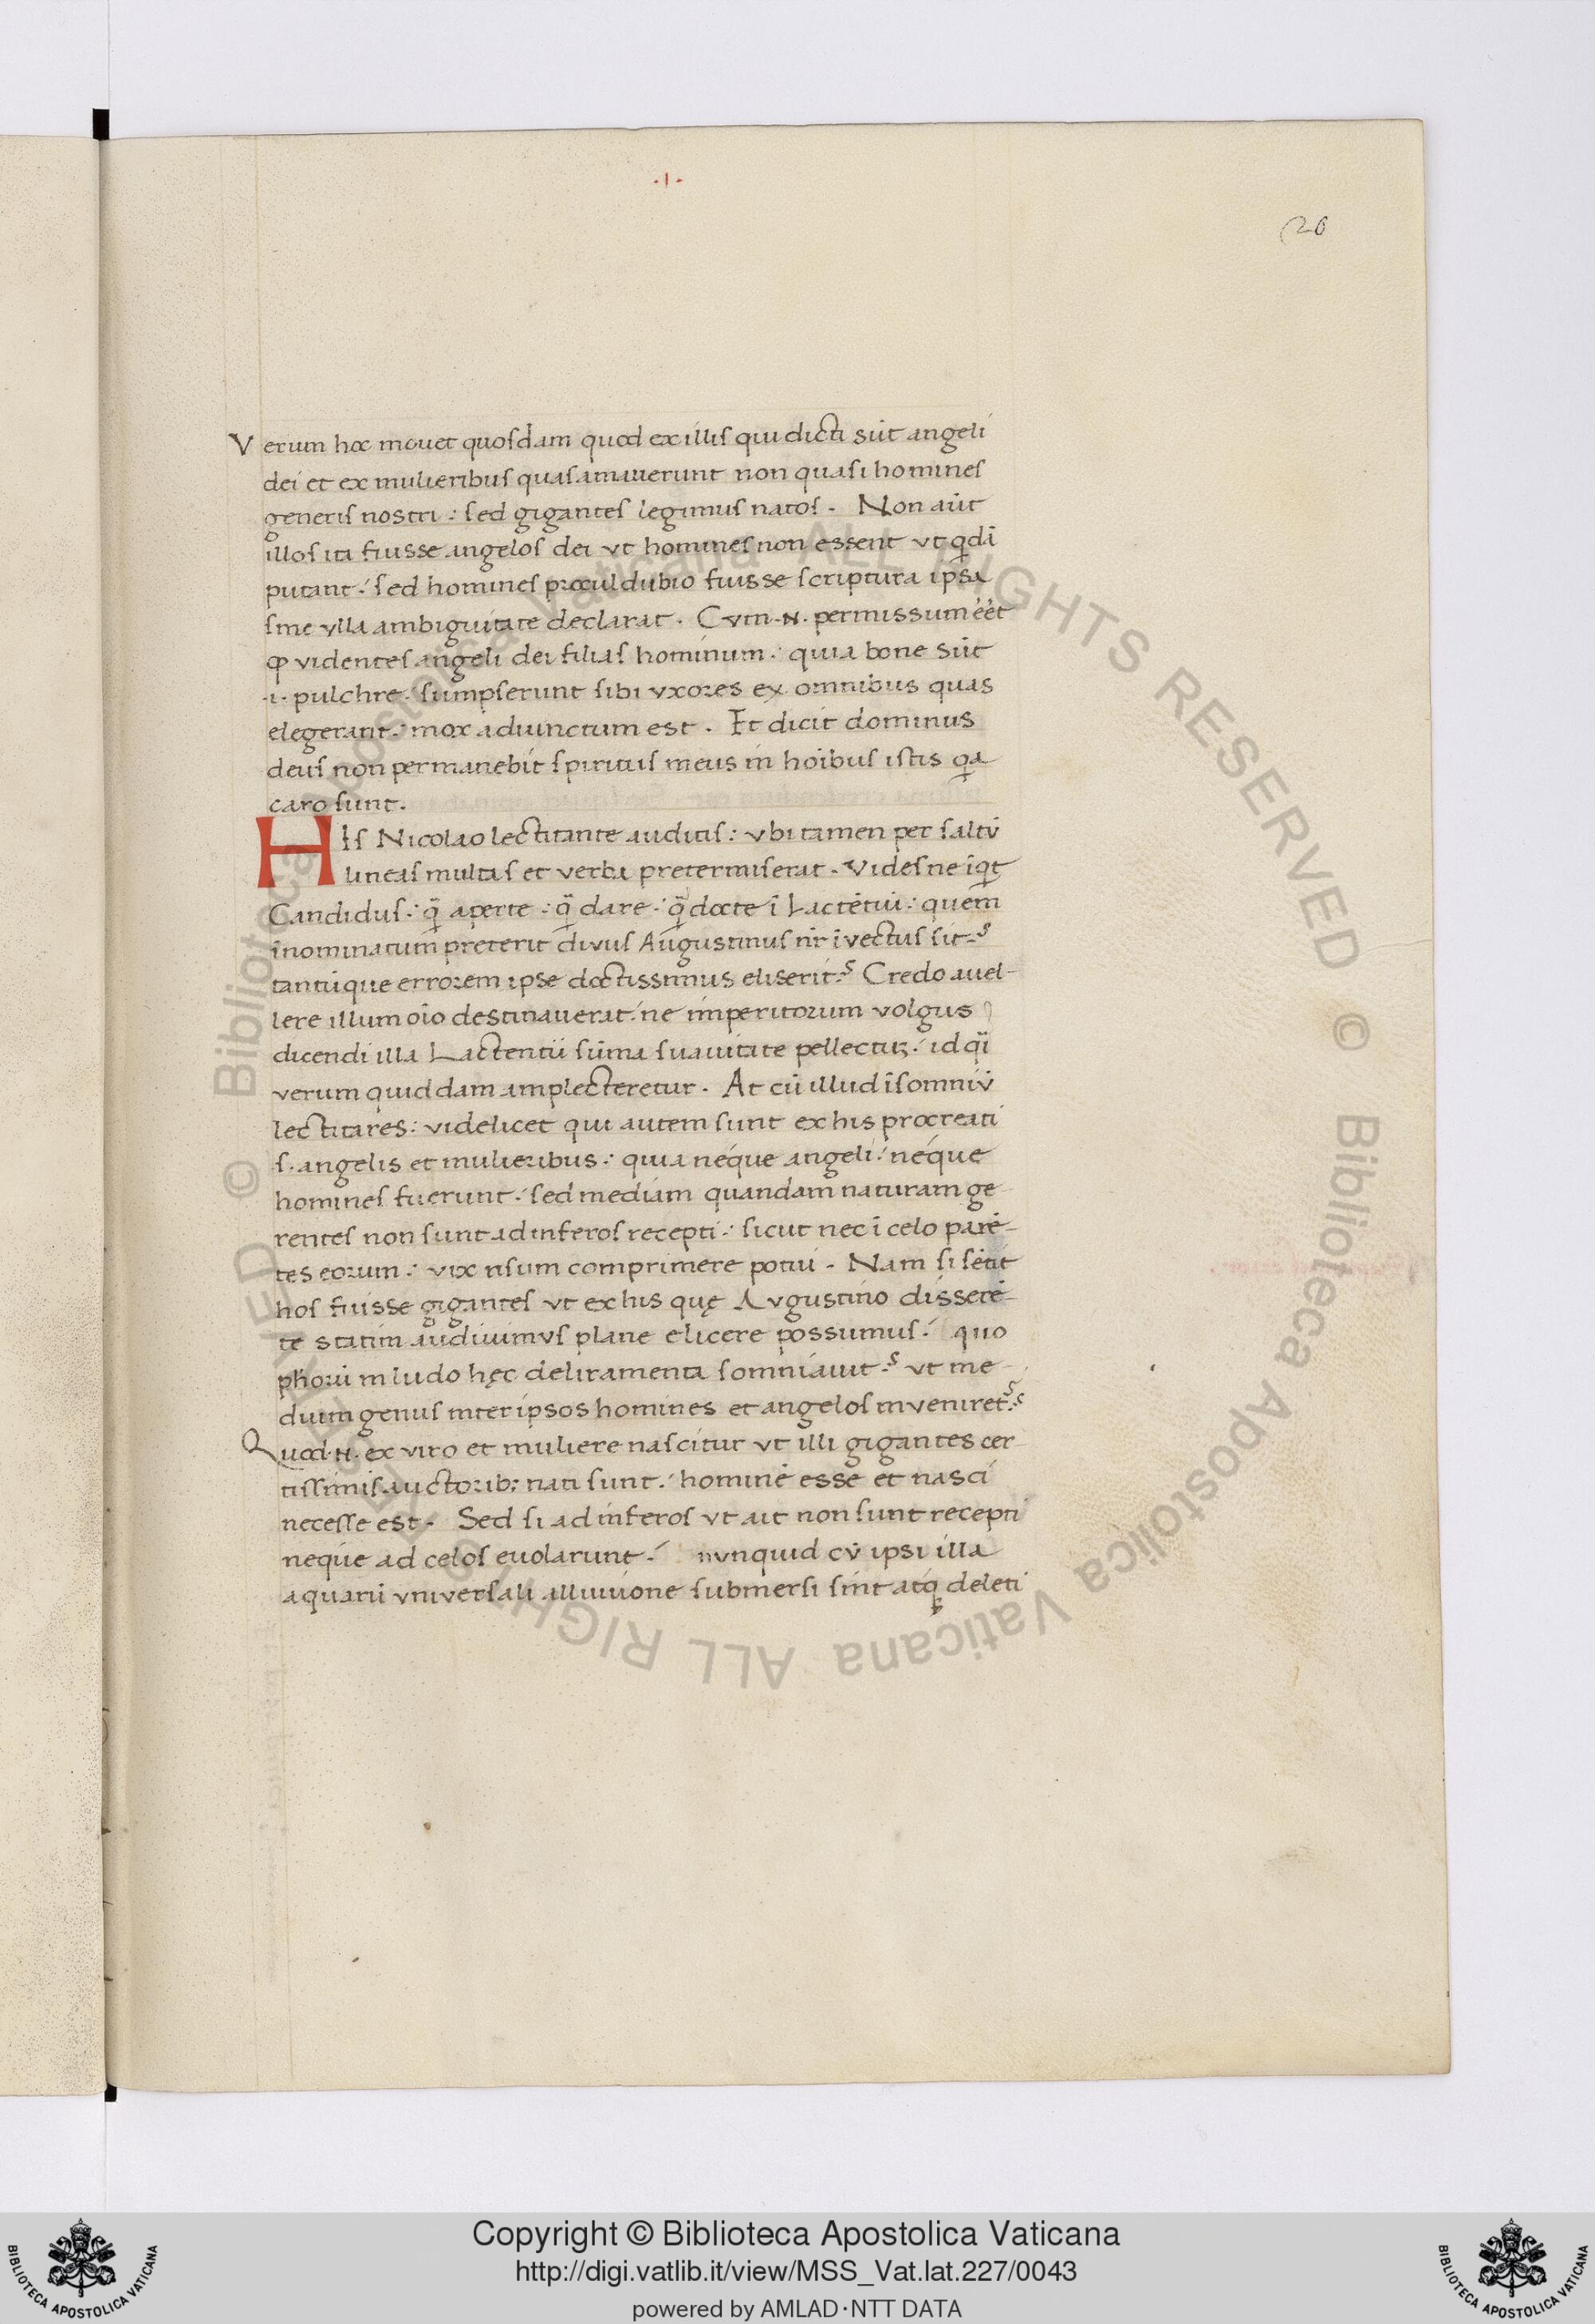 ·I·
20
Verum hoc mouet quosdam quod ex illis qui dicti sūt angeli
dei et ex mulieribus quas amauerunt non quasi homines
generis nostri : sed gigantes legimus natos . Non aūt
illos ita fuisse angelos dei vt homines non essent vt q̄dā
putant : sed homines proculdubio fuisse scriptura ipsa
sine vlla ambiguitate declarat . Cvm .N. permissum eēt
ꝙ videntes angeli dei filias hominum : quia bone sūt
.i. pulchre . sumpserunt sibi vxores ex omnibus quas
elegerant : mox adiunctum est . Et dicit dominus
deus non permanebit spiritus meus in hoibus istis q̄a
caro sunt .
HIs Nicolao lectitante auditis : vbi tamen per saltū
lineas multas et verba pretermiserat . Videsne iq̄t
Candidus : q̄ aperte : q̄ clare : q̄ docte ī Lactētiū : quem
inominatum preterit diuus Augustinus nr̄ ivectus sit ?
tantūque errorem ipse doctissimus eliserit ? Credo auel-
lere illum oīo destinauerat : ne imperitorum volgus
dicendi illa Lactentii sūma suauitate pellectuʒ : id q̄i
verum quiddam amplecteretur . At cū illud īsomniū
lectitares : videlicet qui autem sunt ex his procreati
.s. angelis et mulieribus : quia neque angeli : neque
homines fuerunt : sed mediam quandam naturam ge-
rentes non sunt ad inferos recepti : sicut nec ī celo parē-
tes eorum : vix risum comprimere potui . Nam si sētit
hos fuisse gigantes vt ex his quę Avgustino disserē-
te statim audiuimus plane elicere possumus : quo
phorū in ludo hęc deliramenta somniauit ? vt me-
dium genus inter ipsos homines et angelos inveniret ?
Quod .N. ex viro et muliere nascitur vt illi gigantes cer-
tissimis auctorib; nati sunt : hominē esse et nasci
necesse est . Sed si ad inferos vt ait non sunt recepti
neque ad celos euolarunt : nvnquid cū ipsi illa
aquarū vniversali alluuione submersi sint atq̨ deleti
© Biblioteca Apostolica Vaticana ALL RIGHTS RESERVED © Biblioteca Apostolica Vaticana ALL RIGHTS RESERVED
Copyright © Biblioteca Apostolica Vaticana
http://digi.vatlib.it/view/MSS_Vat.lat.227/0043
powered by AMLAD·NTT DATA
BIBLIOTECA APOSTOLICA VATICANA
BIBLIOTECA APOSTOLICA VATICANA